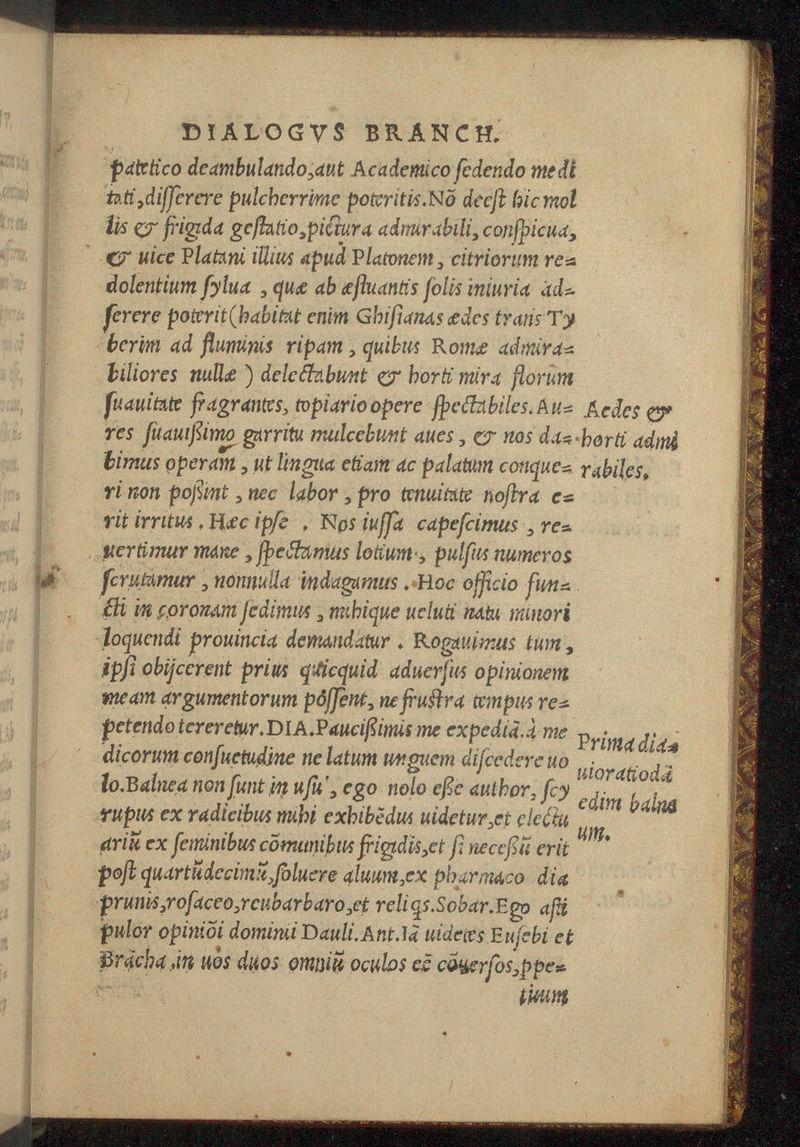 DIALOGVS BRANCH.
patetico deambulando,aut Academico ſedendo medi
tati,diſſerere pulcherrime poteritis.Nō deeſt hic mol
lis & frigida geſtatio,pictura admirabili,conſpicua,
& uice Platani illius apud Platonem , citriorum re=
dolentium ſylua , quæ ab æſtuantis ſolis iniuria ad=
ferere poterit(habitat enim Ghiſianas ædes trans Ty
berim ad fluminis ripam , quibus Romæ admira=
biliores nullæ ) delectabunt & horti mira florum
ſuauitate fragrantes, topiario opere ſpectabiles.Au=
res ſuauiſsimo garritu mulcebunt aues , & nos da=
bimus operam , ut lingua etiam ac palatum conque=
ri non poſsint , nec labor , pro tenuitate noſtra ce=
rit irritus . Hæc ipſe . Nos iuſſa capeſcimus , re=
uertimur mane , ſpectamus lotium , pulſus numeros
ſcrutamur , nonnulla indagamus . Hoc officio fun=
cti in coronam ſedimus , mihique ueluti natu minori
loquendi prouincia demandatur . Rogauimus tum ,
ipſi obijcerent prius quicquid aduerſus opinionem
meam argumentorum póſſent, ne fruſtra tempus re=
petendo tereretur.DIA.Pauciſsimis me expediā.à me
dicorum conſuetudine ne latum unguem diſcedere uo
lo.Balnea non ſunt in uſu , ego nolo eſſe author, ſcy
rupus ex radicibus mihi exhibēdus uidetur,et electu
ariū ex ſeminibus cōmunibus frigidis,et ſi neceſſū erit
poſt quartūdecimū,ſoluere aluum,ex pharmaco dia
prunis,roſaceo,reubarbaro,et reliqs.Sobar.Ego aſti
pulor opiniōi domini Dauli.Ant.Iā uidetes Euſebi et
Brācha ,in uos duos omniū oculos eē cōuerſos,ppe=
tuum
Aedes &
horti admi
rabiles,
Prima dia=
uioratiodā
edim balna
um.